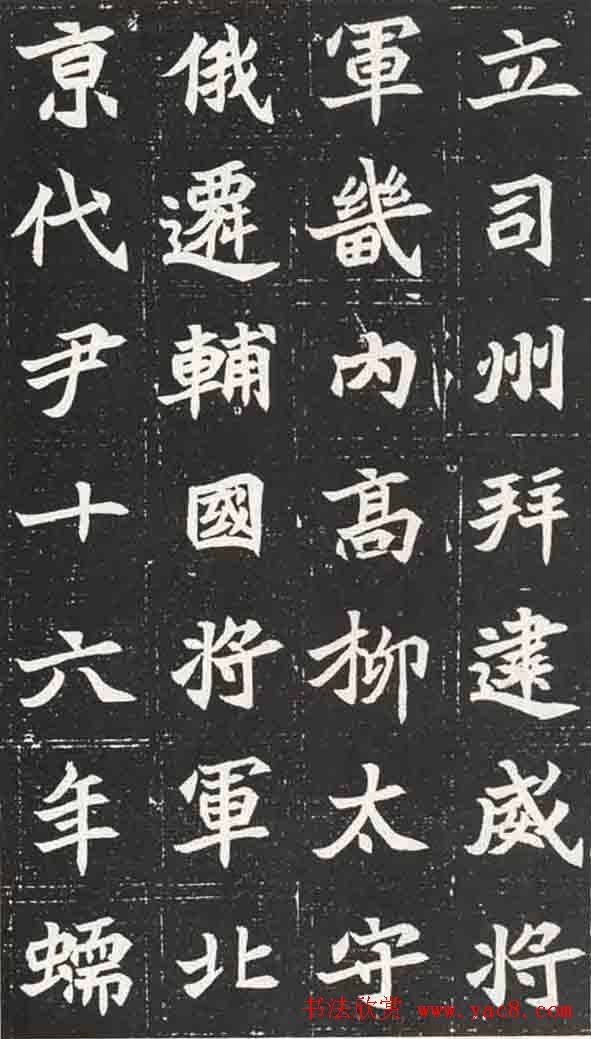 立司州拜建威将
軍畿内髙柳太守
俄遷輔國将軍北
亰代尹十六年蠕
书法欣赏 www.yac8.com